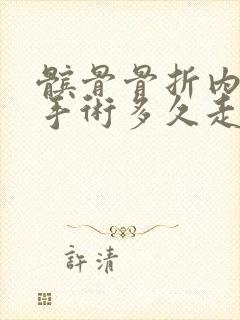 髌骨骨折内
手術多久走
許清